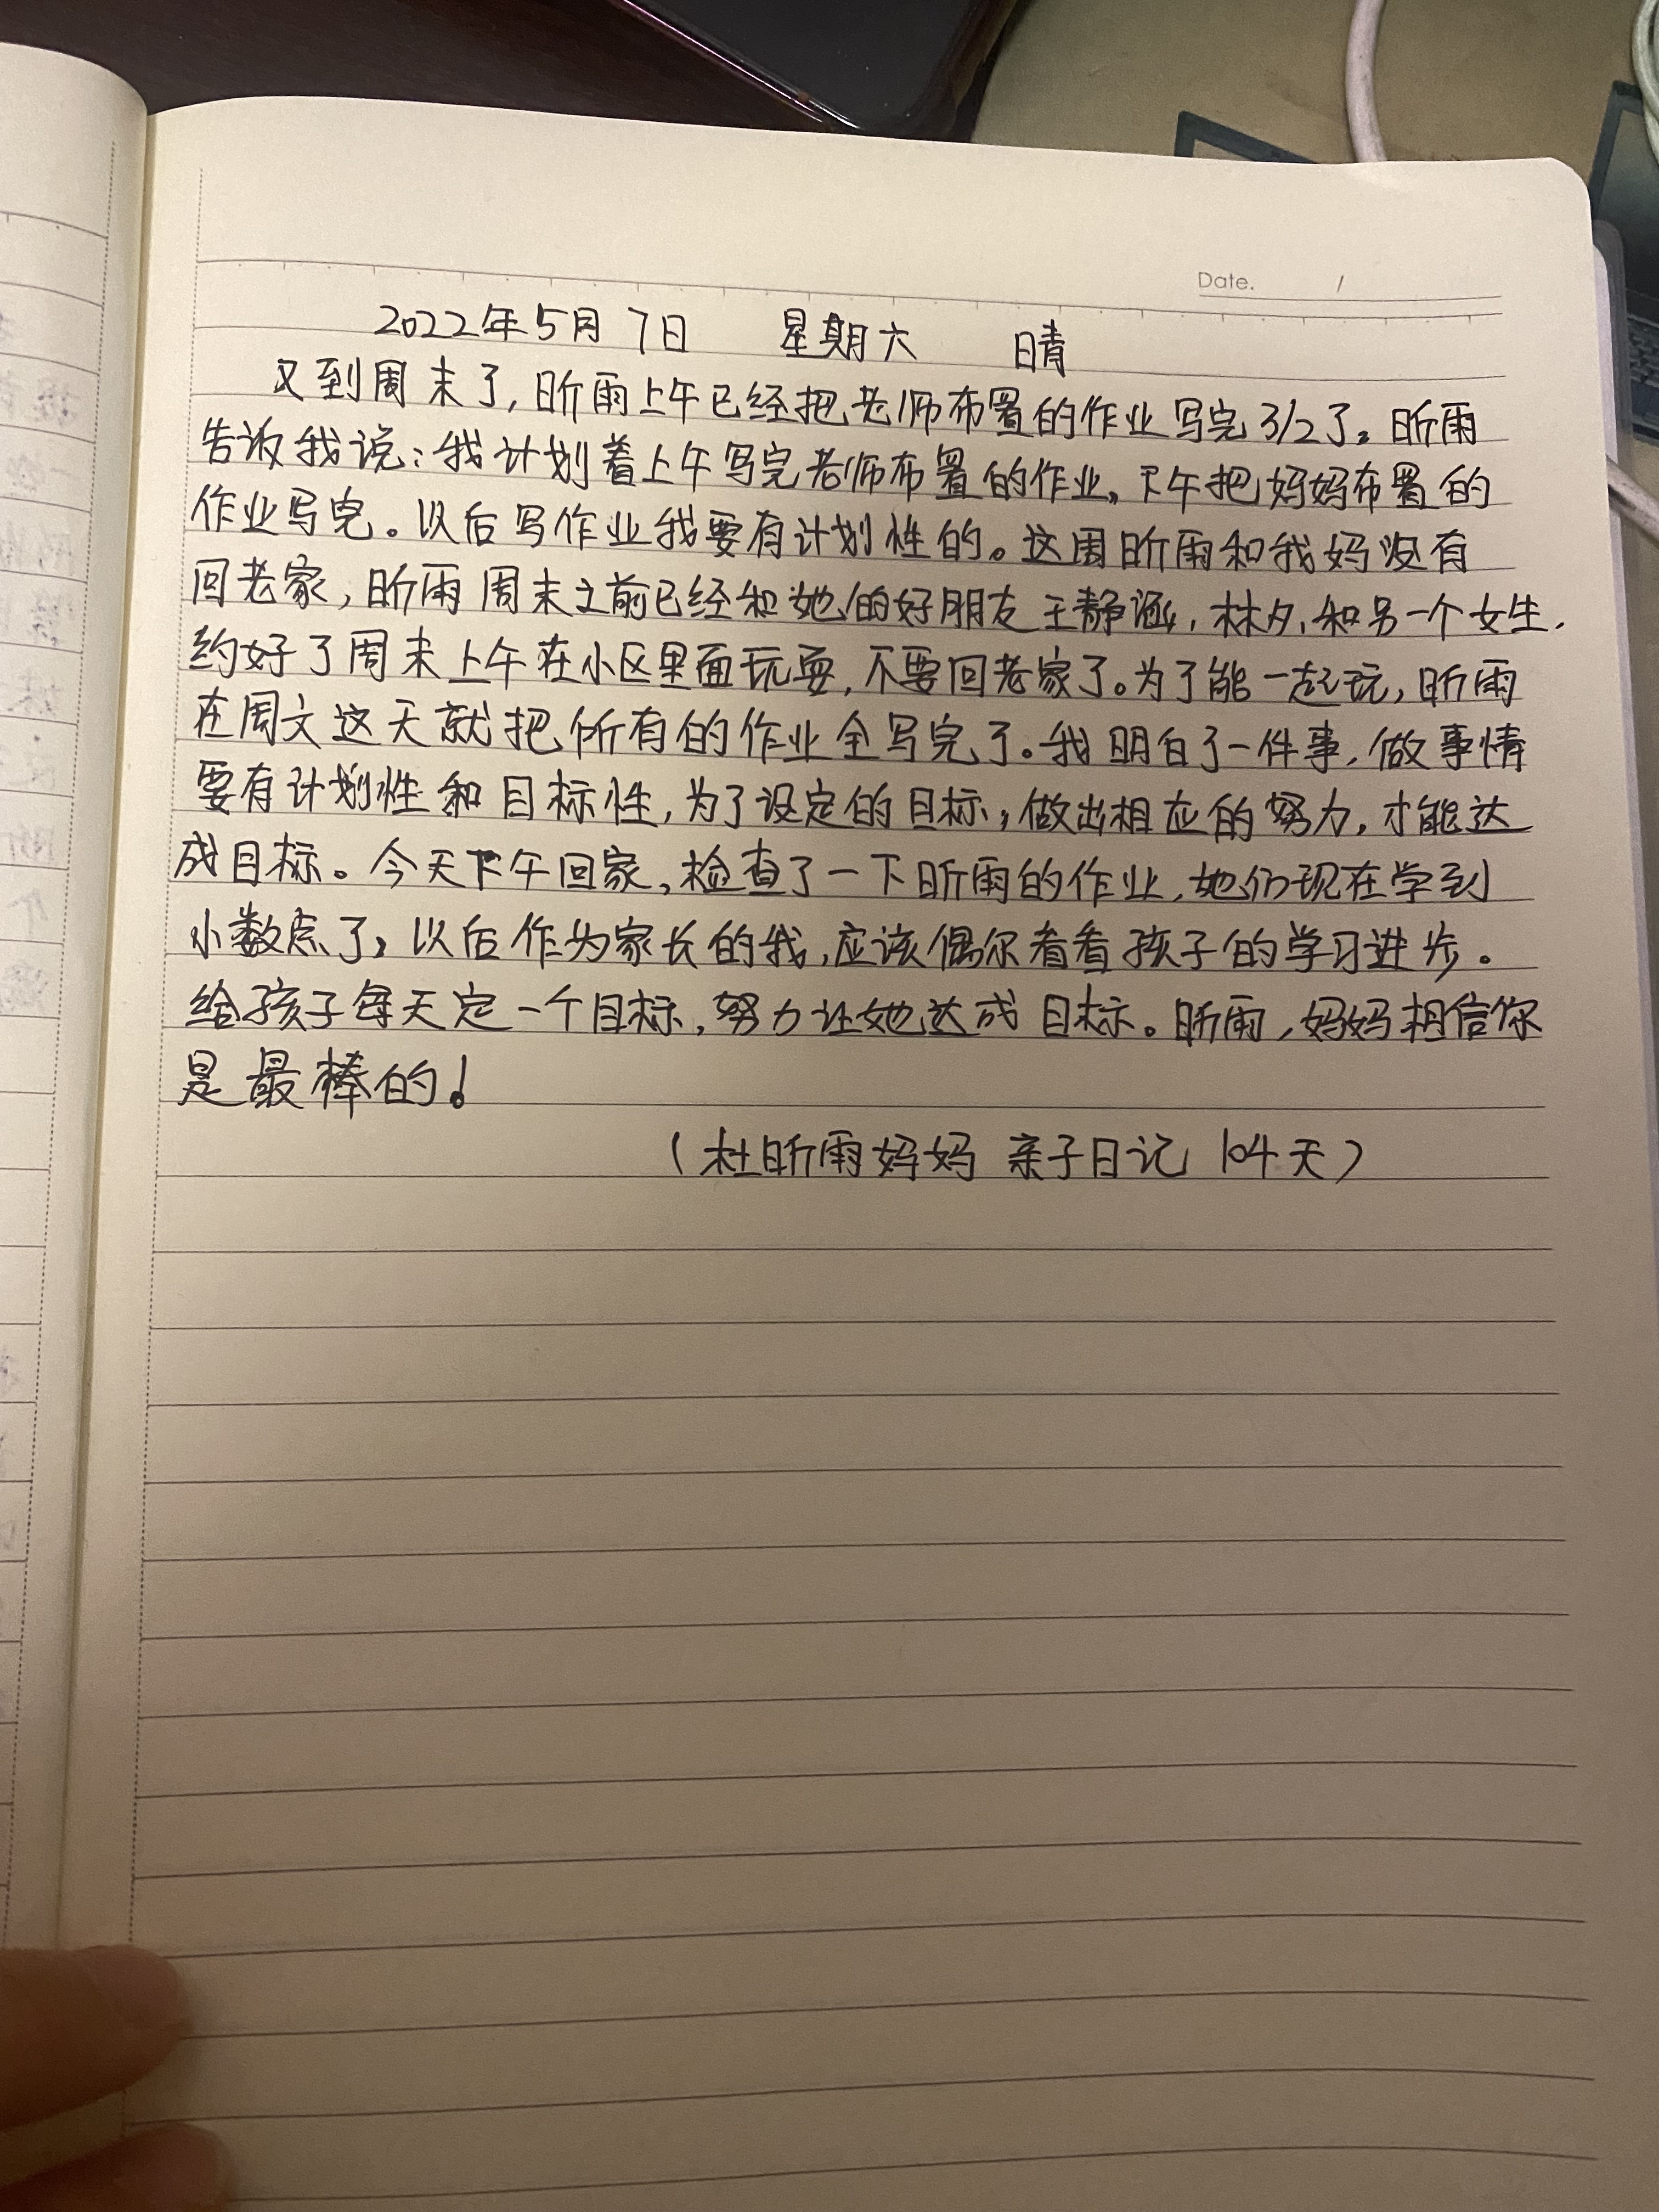 Date. /
2022年5月7日 星期六 晴
又到周末了,昕雨上午已经把老师布置的作业写完3/2了。昕雨
告诉我说:我计划着上午写完老师布置的作业,下午把妈妈布置的
作业写完。以后写作业我要有计划性的。这周昕雨和我妈没有
回老家,昕雨周末之前已经和她的好朋友王静涵,林夕,和另一个女生,
约好了周末上午在小区里面玩耍,不要回老家了。为了能一起玩,昕雨
在周六这天就把所有的作业全写完了。我明白了一件事,做事情
要有计划性和目标性,为了设定的目标,做出相应的努力,才能达
成目标。今天下午回家,检查了一下昕雨的作业,她们现在学到
小数点了,以后作为家长的我,应该偶尔看看孩子的学习进步。
给孩子每天定一个目标,努力让她达成目标。昕雨,妈妈相信你
是最棒的!
(杜昕雨妈妈 亲子日记 104天)